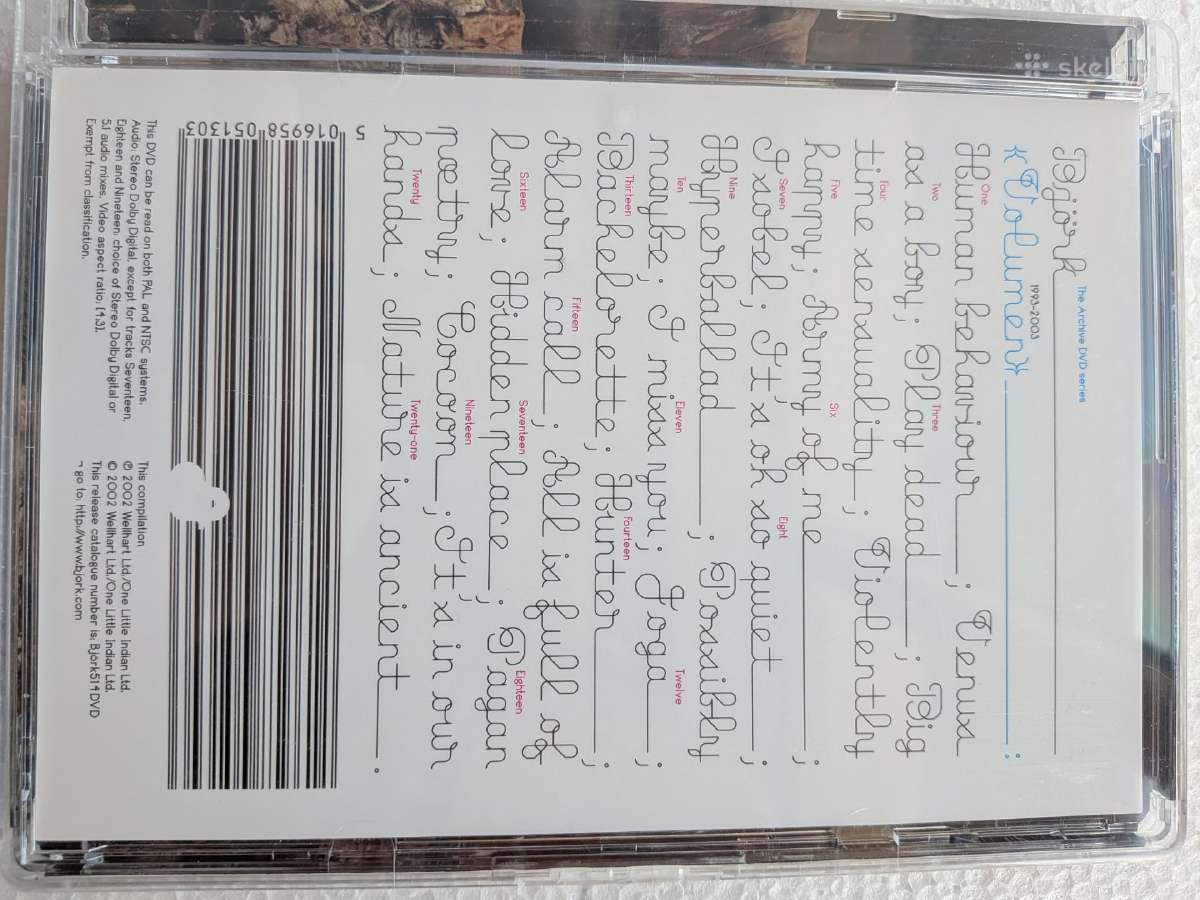 The Archive DVD series
Björk
1993-2003
«Volumen»;
One
Human behaviour; Venus
Two Three
as a boy; Play dead; Big
Four
time sensuality; Violently
Five Six
happy; Army of me;
Seven Eight
Isobel; It's oh so quiet;
Nine
Hyperballad; Possibly
Ten Eleven Twelve
maybe; I miss you; Joga;
Thirteen Fourteen
Bachelorette; Hunter;
Fifteen
Alarm call; All is full of
Sixteen Seventeen Eighteen
love; Hidden place; Pagan
Nineteen
poetry; Cocoon; It's in our
Twenty Twenty-one
hands; Nature is ancient.
5 016958 051303
This DVD can be read on both PAL and NTSC systems.
Audio: Stereo Dolby Digital, except for tracks Seventeen,
Eighteen and Nineteen: choice of Stereo Dolby Digital or
5.1 audio mixes. Video aspect ratio: [4:3].
Exempt from classification.
This compilation
℗ 2002 Wellhart Ltd./One Little Indian Ltd.
© 2002 Wellhart Ltd./One Little Indian Ltd.
This release catalogue number is: Bjork514DVD
¬ go to: http://www.bjork.com